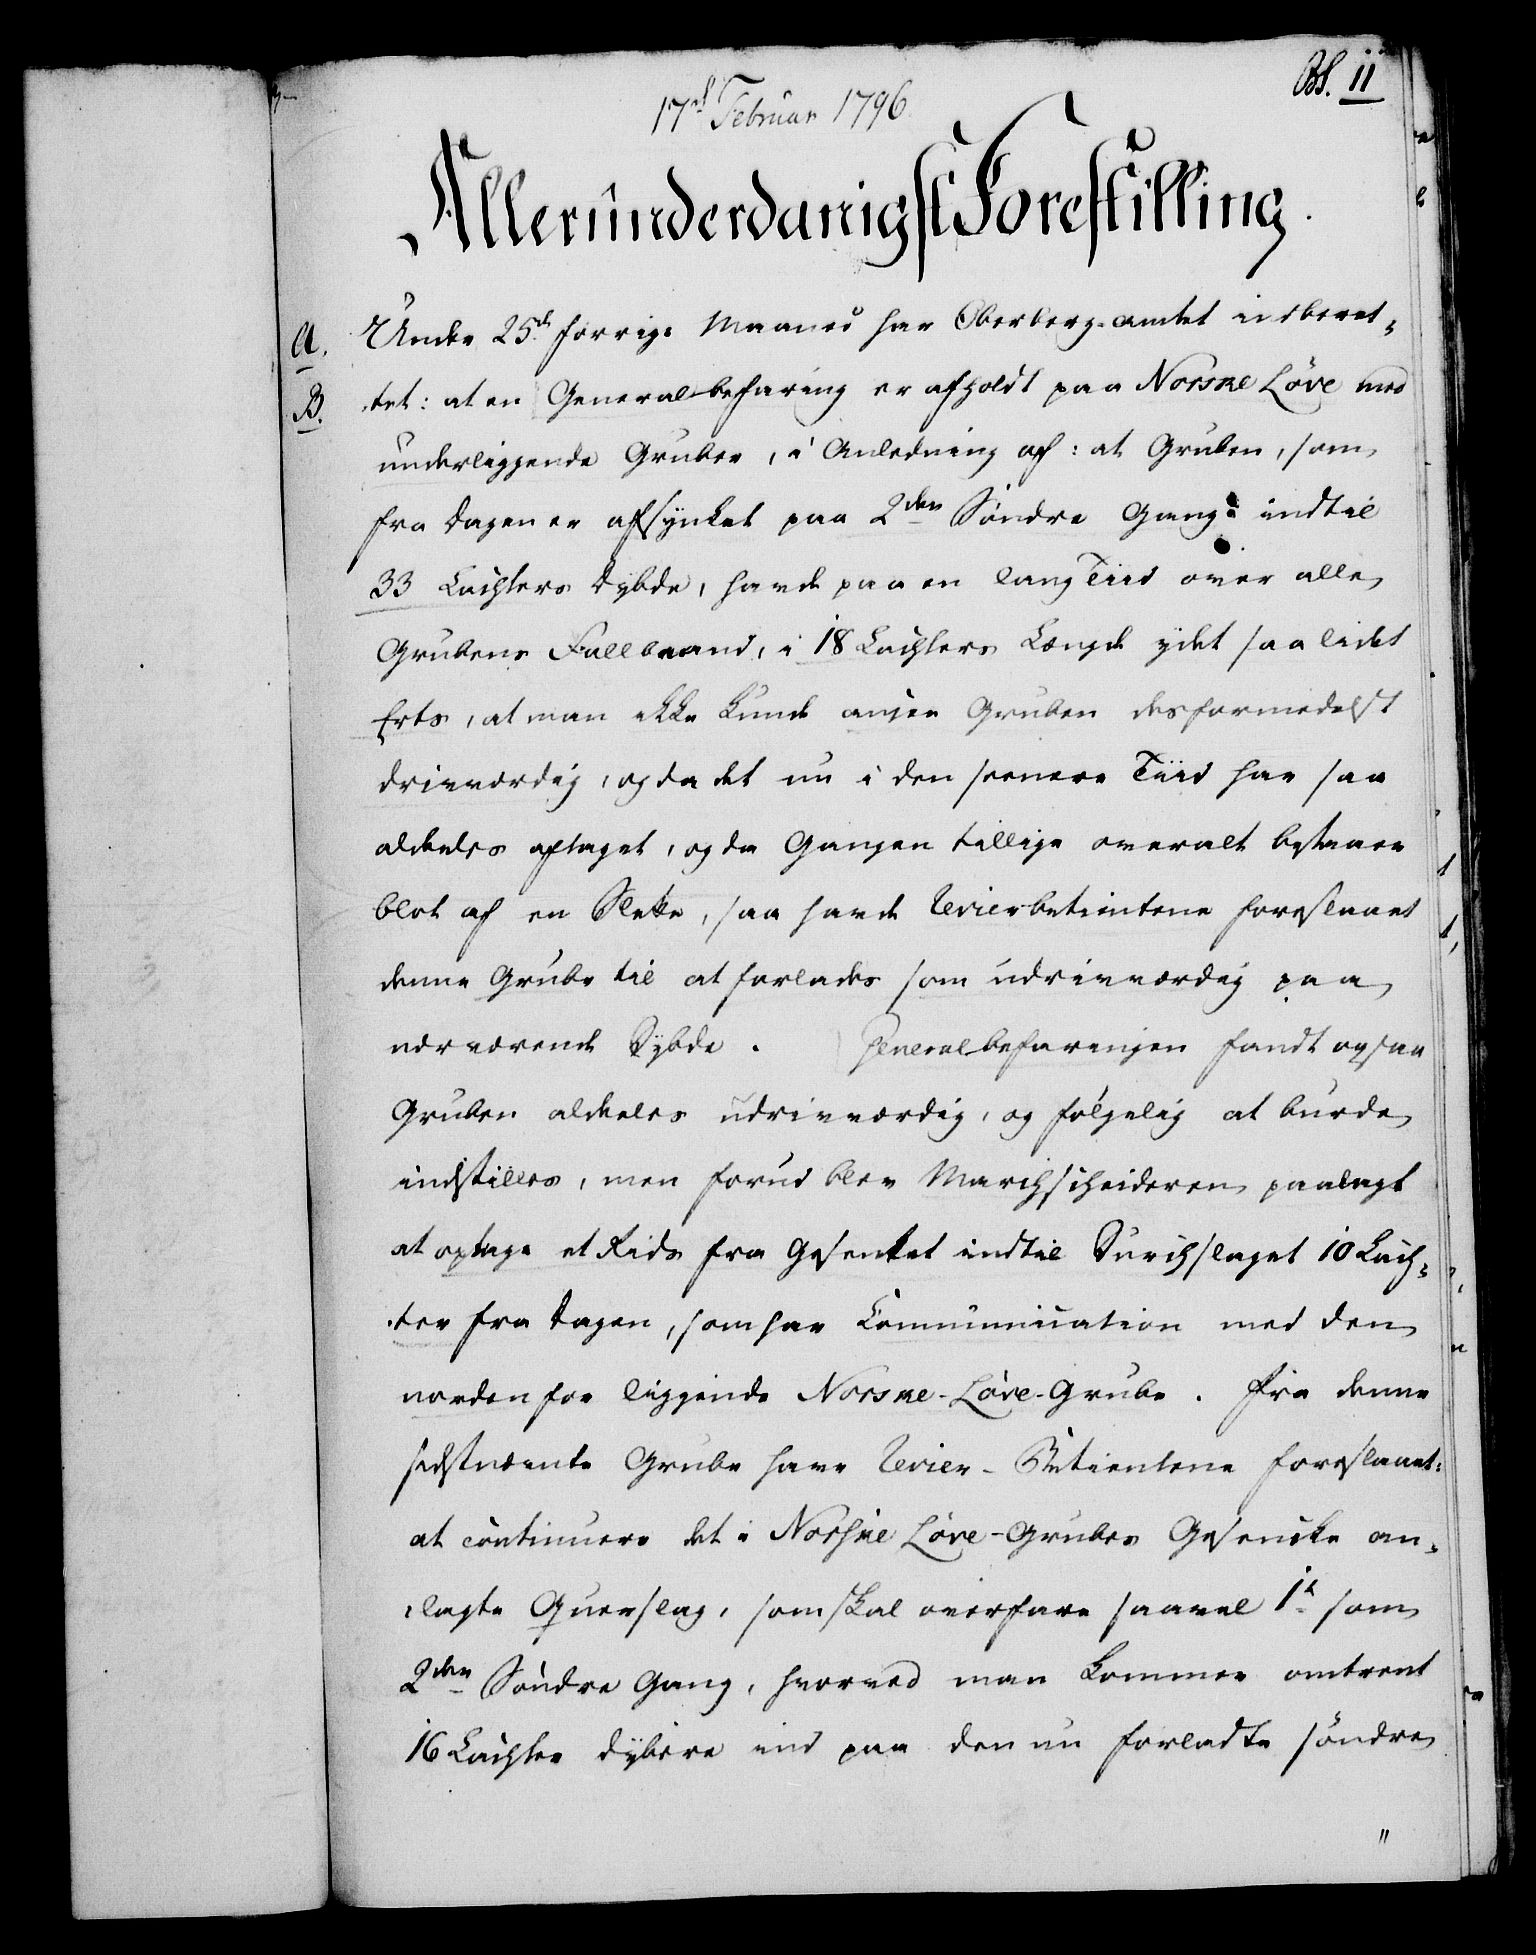 Bl. 11
17d Februar 1796.
Allerunderdanigst Forestilling.
A. Under 25d forrige Maaned har Oberberg-amtet indberet-
B. tet: at en Generalbefaring er afholdt paa Norske Löve med
underliggende Gruber, i Anledning af: at Gruben, som
fra Dagen er afsynket paa 2den Söndre Gang indtil
33 Lachters Dybde, havde paa en lang Tiid over alle
Grubens Fallbaand, i 18 Lachters Længde ydet saa lidet
Erts, at man ikke kunde ansee Gruben desformedelst
drivværdig, og da det nu i den seenere Tiid har saa
aldeeles aftaget, og da Gangen tillige overalt bestaaer
blot af en Slette, saa havde Revierbetientene foreslaaet
denne Grube til at forlades som udrivværdig paa
nærværende Dybde. Generalbefaringen fandt ogsaa
Gruben aldeeles udrivværdig, og fölgelig at burde
indstilles, men forud blev Marchscheideren paalagt
at optage et Rids fra Gesenket indtil Durchslaget 10 Lach-
ter fra Dagen, som har Communication med den
nordenfor liggende Norske-Löve-Grube. Fra denne
sidstnævnte Grube have Revier-Betientene foreslaaet:
at continuere det i Norske Löve-Grubes Gesencke an-
lagte Querslag, som skal overfare saavel 1te som
2den Söndre Gang, hvorved man kommer omtrent
16 Lachter dybere ind paa den nu forladte söndre
"